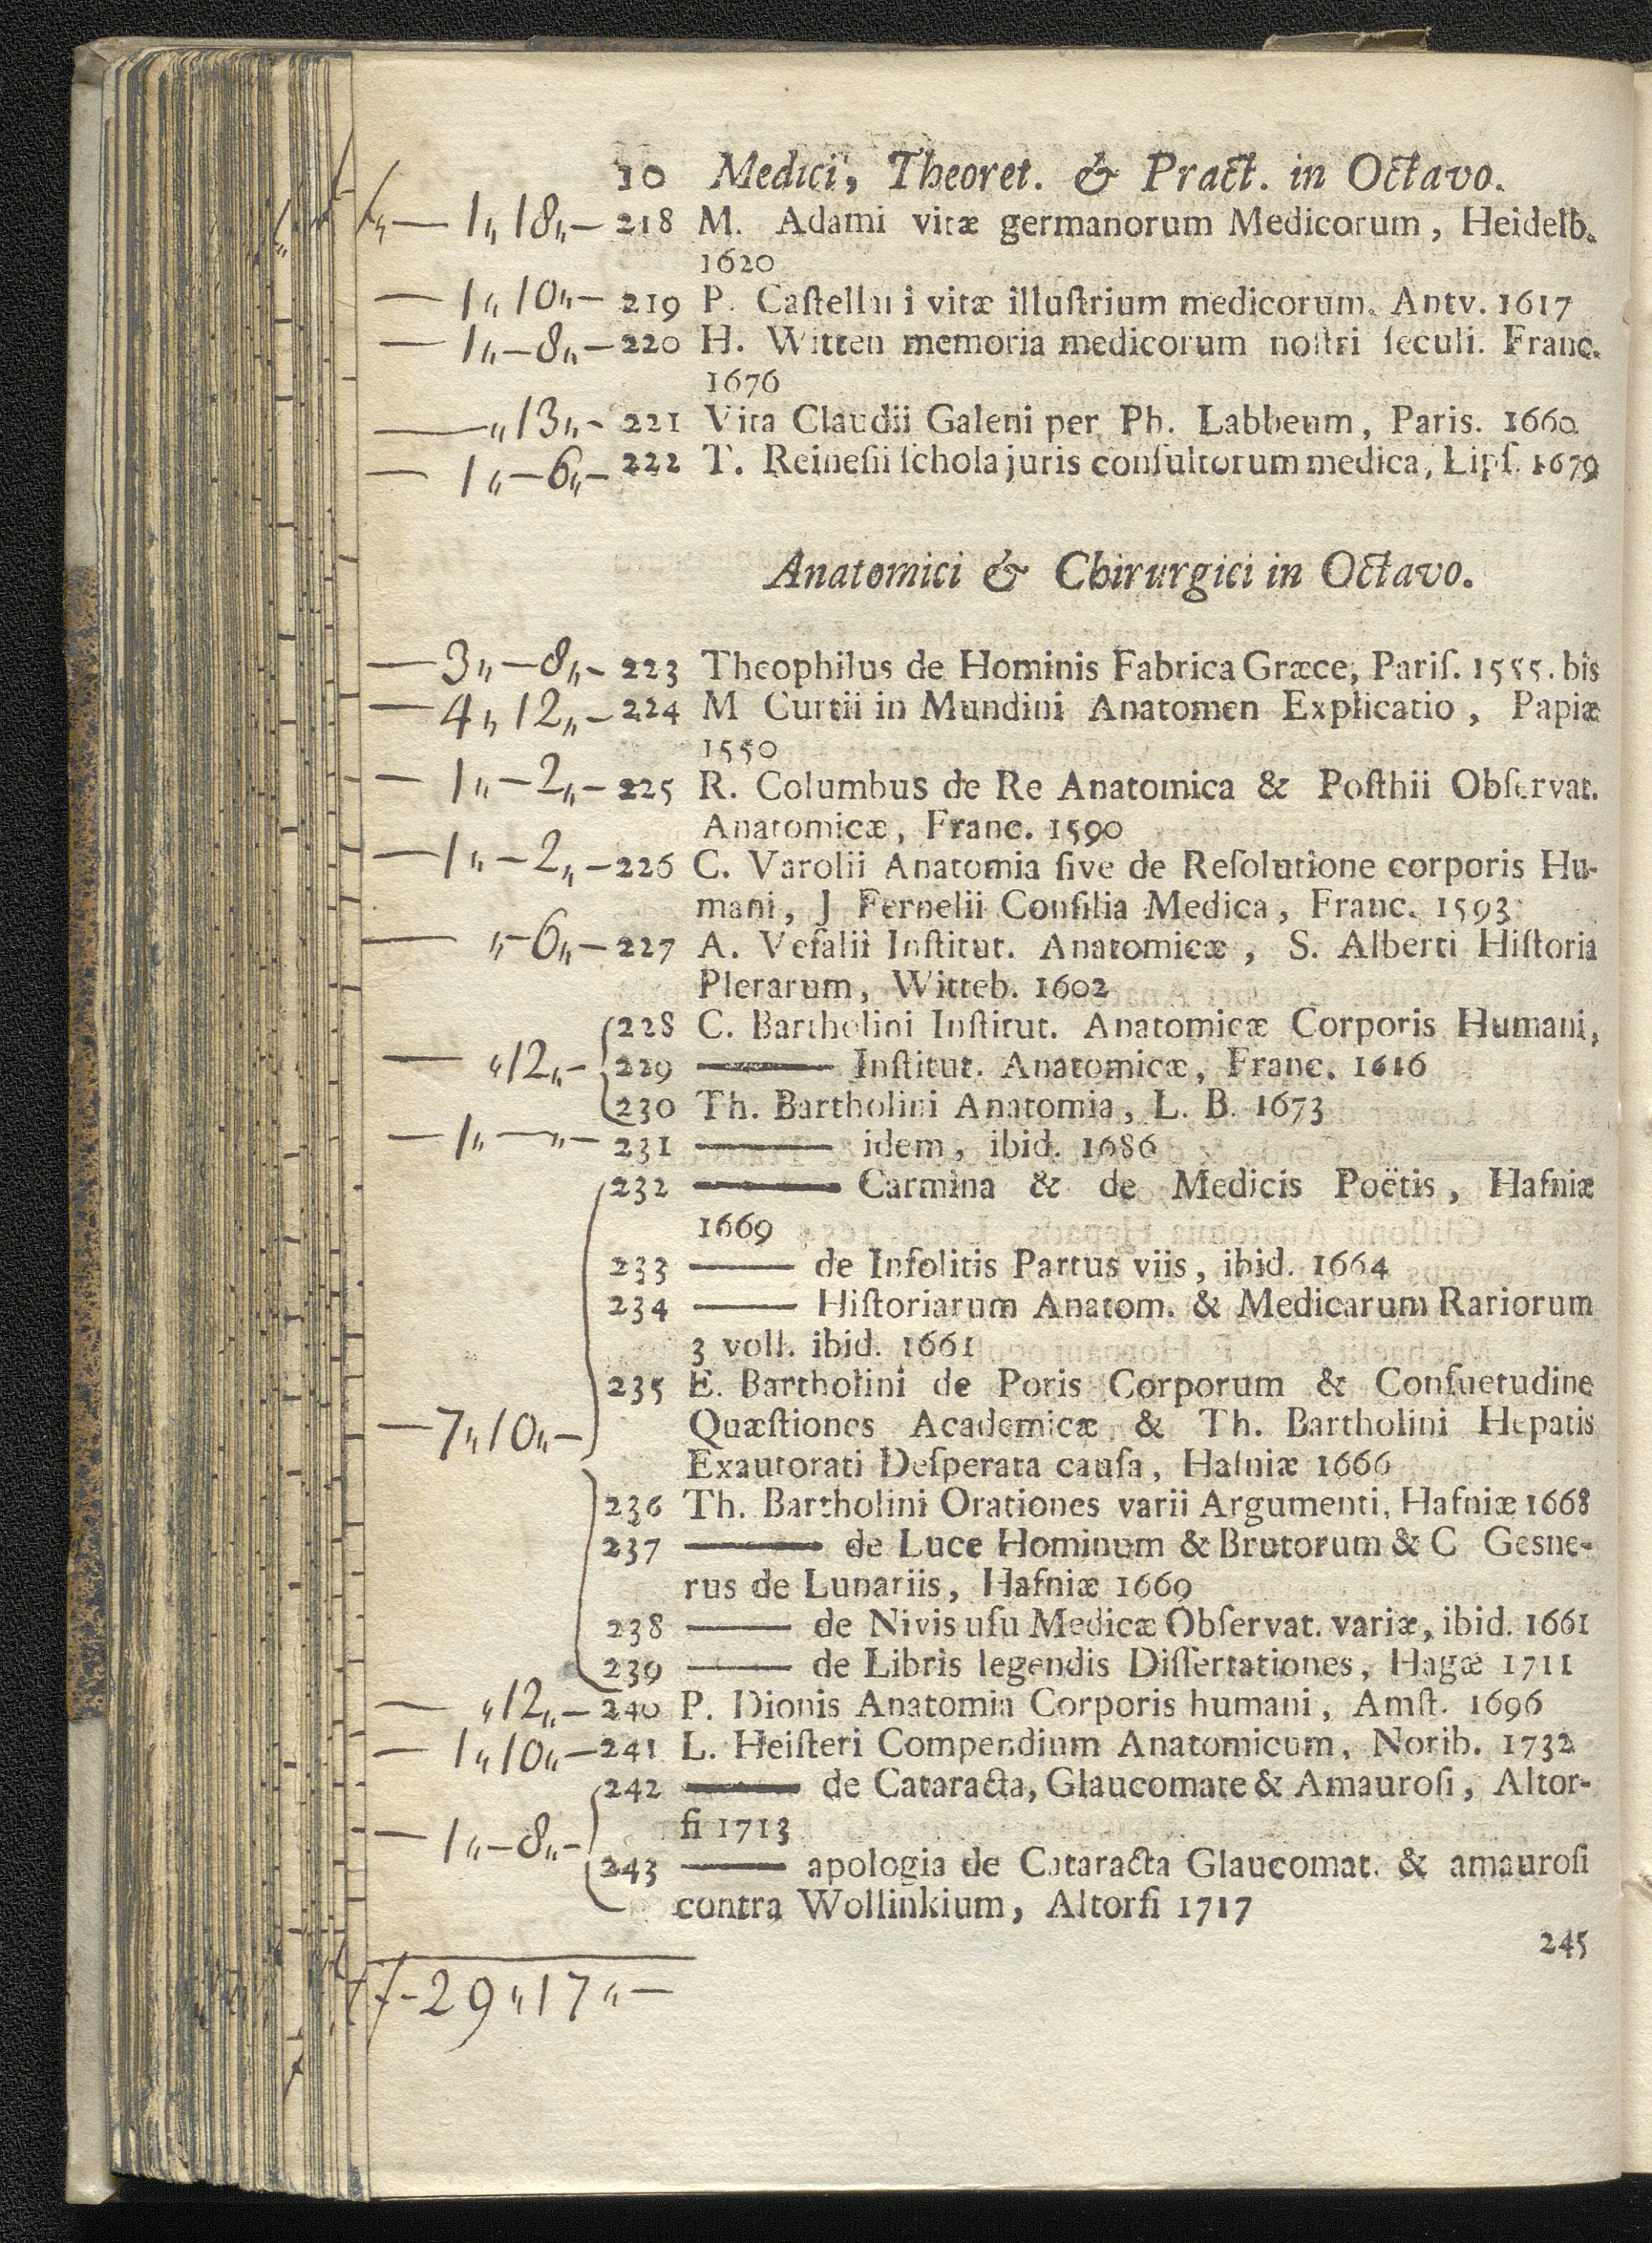 10 Medici, Theoret. & Pract. in Octavo.
ƒ — 1„ 18„ — 218 M. Adami vitæ germanorum Medicorum, Heidelb.
1620
— 1„ 10„ — 219 P. Caſtellani vitæ illuſtrium medicorum. Antv. 1617
— 1„ — 8„ — 220 H. Witten memoria medicorum noſtri ſeculi. Franc.
1676
— „ 13„ - 221 Vita Claudii Galeni per Ph. Labbeum, Paris. 1660
— 1„ — 6„ — 222 T. Reineſii ſchola juris conſultorum medica, Lipſ. 1679
Anatomici & Chirurgici in Octavo.
— 3„ — 8„ - 223 Theophilus de Hominis Fabrica Græce, Pariſ. 1555. bis
— 4„ 12„ - 224 M Curtii in Mundini Anatomen Explicatio, Papiæ
1550
— 1„ — 2„ — 225 R. Columbus de Re Anatomica & Poſthii Obſervat.
Anatomicæ, Franc. 1590
— 1„ — 2„ — 226 C. Varolii Anatomia ſive de Reſolutione corporis Hu-
mani, J Fernelii Conſilia Medica, Franc. 1593
— „ - 6„ — 227 A. Veſalii Inſtitut. Anatomicæ, S. Alberti Hiſtoria
Plerarum, Witteb. 1602
228 C. Bartholini Inſtitut. Anatomicæ Corporis Humani,
— „ 12„ - 229 —— Inſtitut. Anatomicæ, Franc. 1616
230 Th. Bartholini Anatomia, L. B. 1673
— 1„ — „ — 231 —— idem, ibid. 1686
232 —— Carmina & de Medicis Poëtis, Hafniæ
1669
233 —— de Inſolitis Partus viis, ibid. 1664
234 —— Hiſtoriarum Anatom. & Medicarum Rariorum
3 voll. ibid. 1661
235 E. Bartholini de Poris Corporum & Conſuetudine
— 7„ 10„ — Quæſtiones Academicæ & Th. Bartholini Hepatis
Exautorati Deſperata cauſa, Hafniæ 1666
236 Th. Bartholini Orationes varii Argumenti, Hafniæ 1668
237 —— de Luce Hominum & Brutorum & C Gesne-
rus de Lunariis, Hafniæ 1669
238 —— de Nivis uſu Medicæ Obſervat. variæ, ibid. 1661
239 —— de Libris legendis Diſſertationes, Hagæ 1711
— „ 12„ — 240 P. Dionis Anatomia Corporis humani, Amſt. 1696
— 1„ 10„ — 241 L. Heiſteri Compendium Anatomicum, Norib. 1732
242 —— de Cataracta, Glaucomate & Amauroſi, Altor-
— 1„ — 8„ - fi 1713
243 —— apologia de Cataracta Glaucomat. & amauroſi
contra Wollinkium, Altorfi 1717
245
ƒ - 29 „ 17 „ —